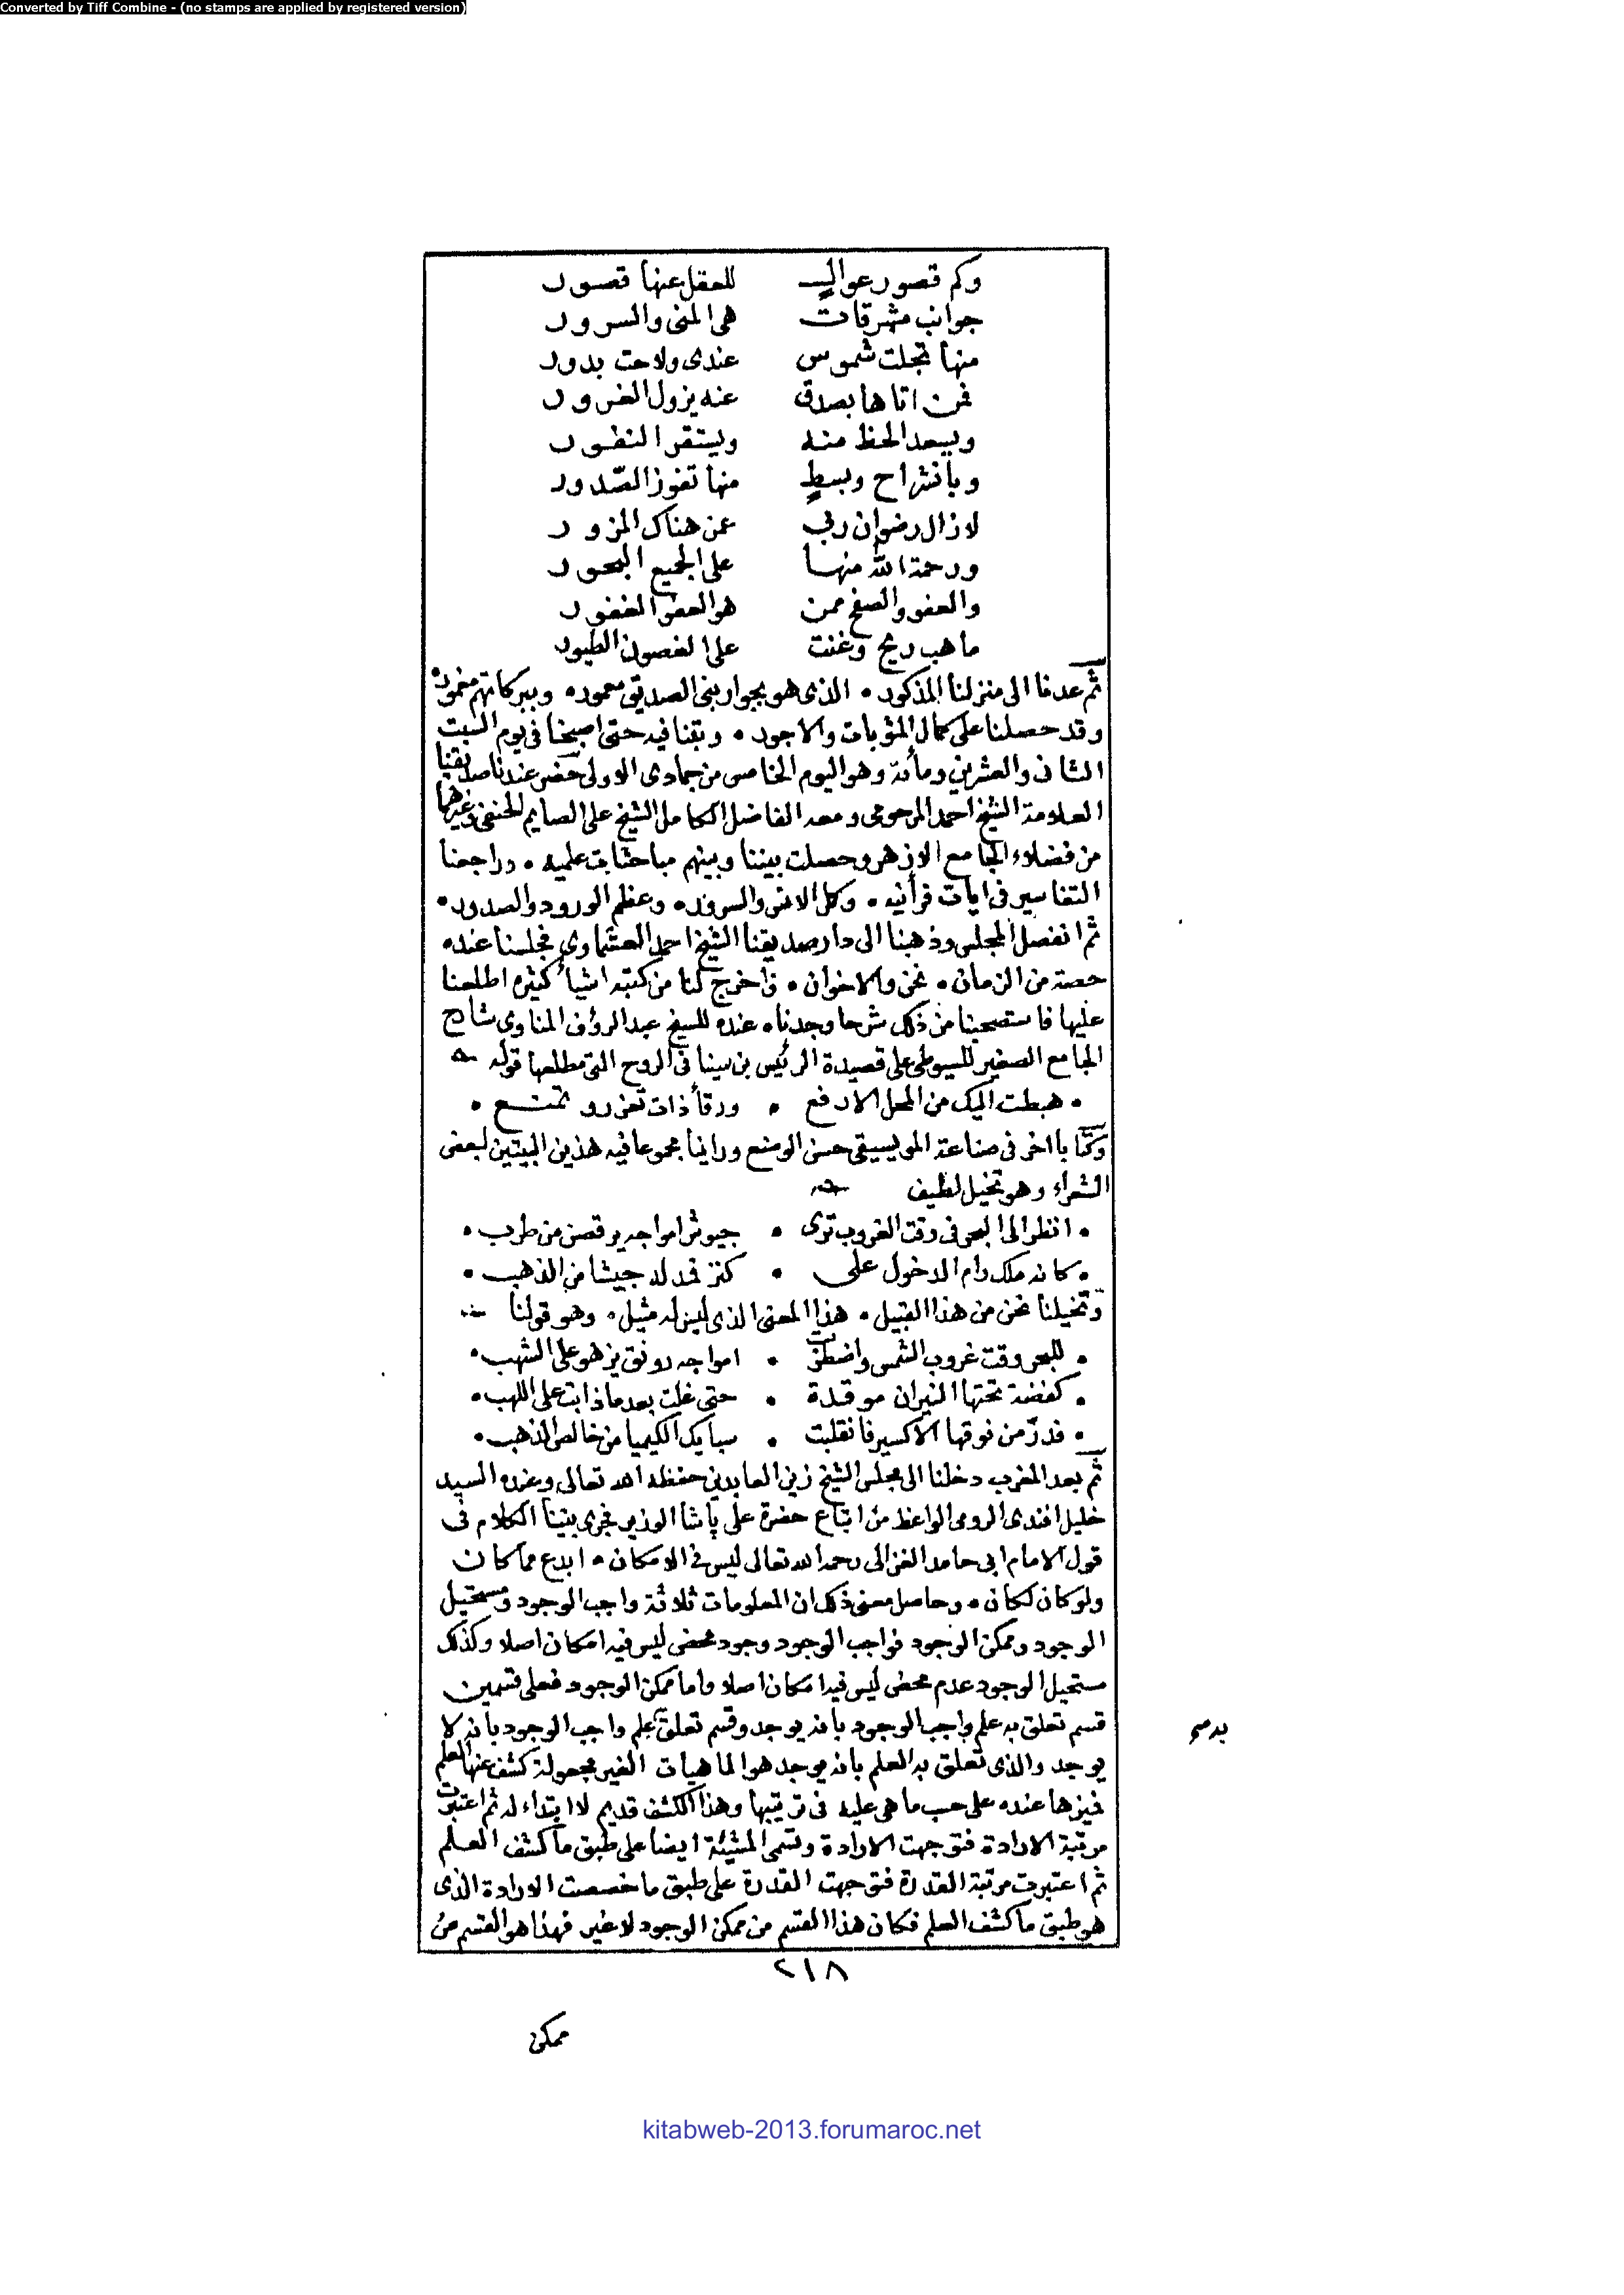 Converted by Tiff Combine - (no stamps are applied by registered version)
وكم قصور عوالٍ للعقل عنها قصور
جوانب مشرقات هى المنى والسرور
منها تجلت شموس عندى ولاحت بدور
فمن اتاها بصدق عنه يزول الغرور
ويسعد الحظ منه ويستقر النفور
وبانشراح وبسطٍ منها تفوز الصّدور
لازال رضوان ربى عمن هناك المزور
ورحمة الله منها على الجميع البحور
والعفو والصفح ممن هو العفو الغفور
ما هب ريح وغنت على الغصون الطيور
ثم عدنا الى منزلنا المذكور • الذى هو بجوار بنى الصديق معمور • وببركاتهم مغمور •
وقد حصلنا على كمال المثوبات والاجور • وبتنا فيه حتى اصبحنا فى يوم السبت
الثانى والعشرين ومائة وهو اليوم الخامس من جمادى الاولى حضر عندنا صديقنا
العلامة الشيخ احمد المرحومى ومعه الفاضل الكامل الشيخ على الصايم الحنفى وغيرهما
من فضلاء الجامع الازهر وحصلت بيننا وبينهم مباحثات علميه • وراجعنا
التفاسير فى ايات قرآنيه • وكمل الانس والسرور • وعظم الورود والصدور •
ثم انفصل المجلس وذهبنا الى دار صديقنا الشيخ احمد العشماوى فجلسنا عنده
حصة من الزمان • نحن والاخوان • فاخرج لنا من كتبه اشياء كثيره اطلعنا
عليها فاستصحبنا من ذلك شرحا وجدناه عنده للشيخ عبد الرؤف المناوى شارح
الجامع الصغير للسيوطى على قصيدة الرئيس بن سينا فى الروح التى مطلعها قوله
• هبطت اليك من المحل الارفع • ورقاء ذات تعزز وتمنع •
وكتابا اخر فى صناعة الموسيقى حسن الوضع وراينا مجموعا فيه هذين البيتين لبعض
الشعراء وهو تخيل لطيف
• انظر الى البحر فى وقت الغروب ترى • جيوش امواجه يرقصن من طرب •
• كانه ملك رام الدخول على • كنز فمد له جيشا من الذهب •
وتخيلنا نحن من هذا القبيل • هذا المعنى الذى ليس له مثيل • وهو قولنا
• للبحر وقت غروب الشمس واضطربت • امواجه رونق يزهو على الشهب •
• كفضة تحتها النيران موقدة • حتى غلت بعد ما ذابت على اللهب •
• فدرّ من فوقها الاكسير فانقلبت • سبايك الكيميا من خالص الذهب •
ثم بعد المغرب دخلنا الى مجلس الشيخ زين العابدين حفظه الله تعالى وعنده السيد
خليل افندى الرومى الواعظ من اتباع حضرة على باشا الوزير فجرى بيننا الكلام فى
قول الامام ابى حامد الغزالى رحمه الله تعالى ليس فى الامكان • ابدع مما كان
ولو كان لكان • وحاصل معنى ذلك ان المعلومات ثلاثة واجب الوجود ومستحيل
الوجود وممكن الوجود فواجب الوجود وجود محض ليس فيه امكان اصلا وكذلك
مستحيل الوجود عدم محض ليس فيه امكان اصلا واما ممكن الوجود فعلى قسمين
قسم تعلق به علم واجب الوجود بانه يوجد وقسم تعلق علم واجب الوجود بانه لا
يوجد والذى تعلق به العلم بانه يوجد هو الماهيات الغير مجعولة كشف عنها العلم
فميزها عنده على حسب ما هى عليه فى ترتيبها وهذا الكشف قديم لا ابتداء له ثم اعتبرت
مرتبة الارادة فتوجهت الارادة وتسمى المشيئة ايضا على طبق ما كشف العلم
ثم اعتبرت مرتبة القدرة فتوجهت القدرة على طبق ما خصصت الارادة الذى
هو طبق ما كشف العلم فكان هذا القسم من ممكن الوجود لا غير فهذا هو القسم من
٢١٨
ممكن
kitabweb-2013.forumaroc.net